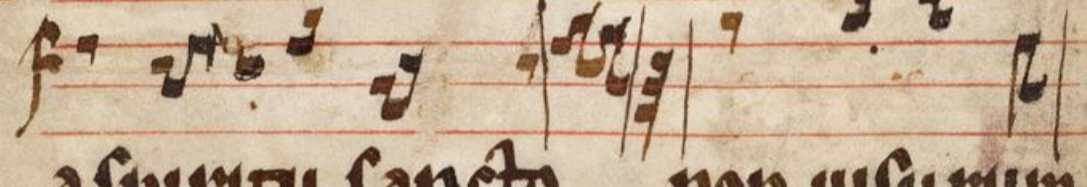 a spiritu sancto non uisurum